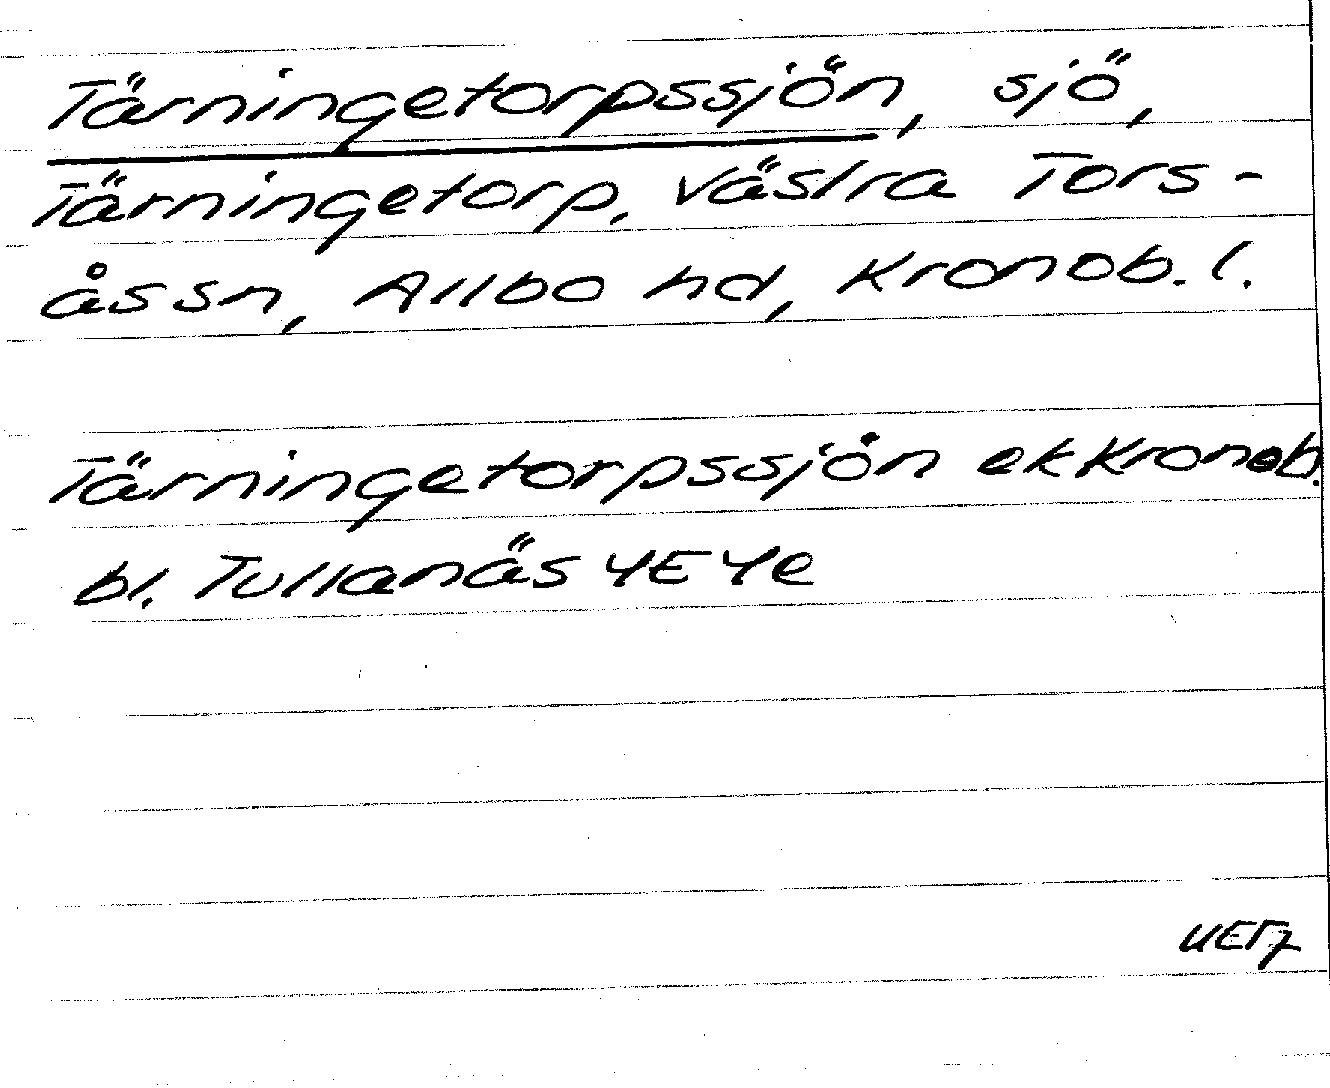 Tärningetorpssjön, sjö,
Tärningetorp, Västra Tors-
åssn, Allbo hd, Kronob. l.
Tärningetorpssjön ek Kronob.
bl. Tullanäs 4E 4e